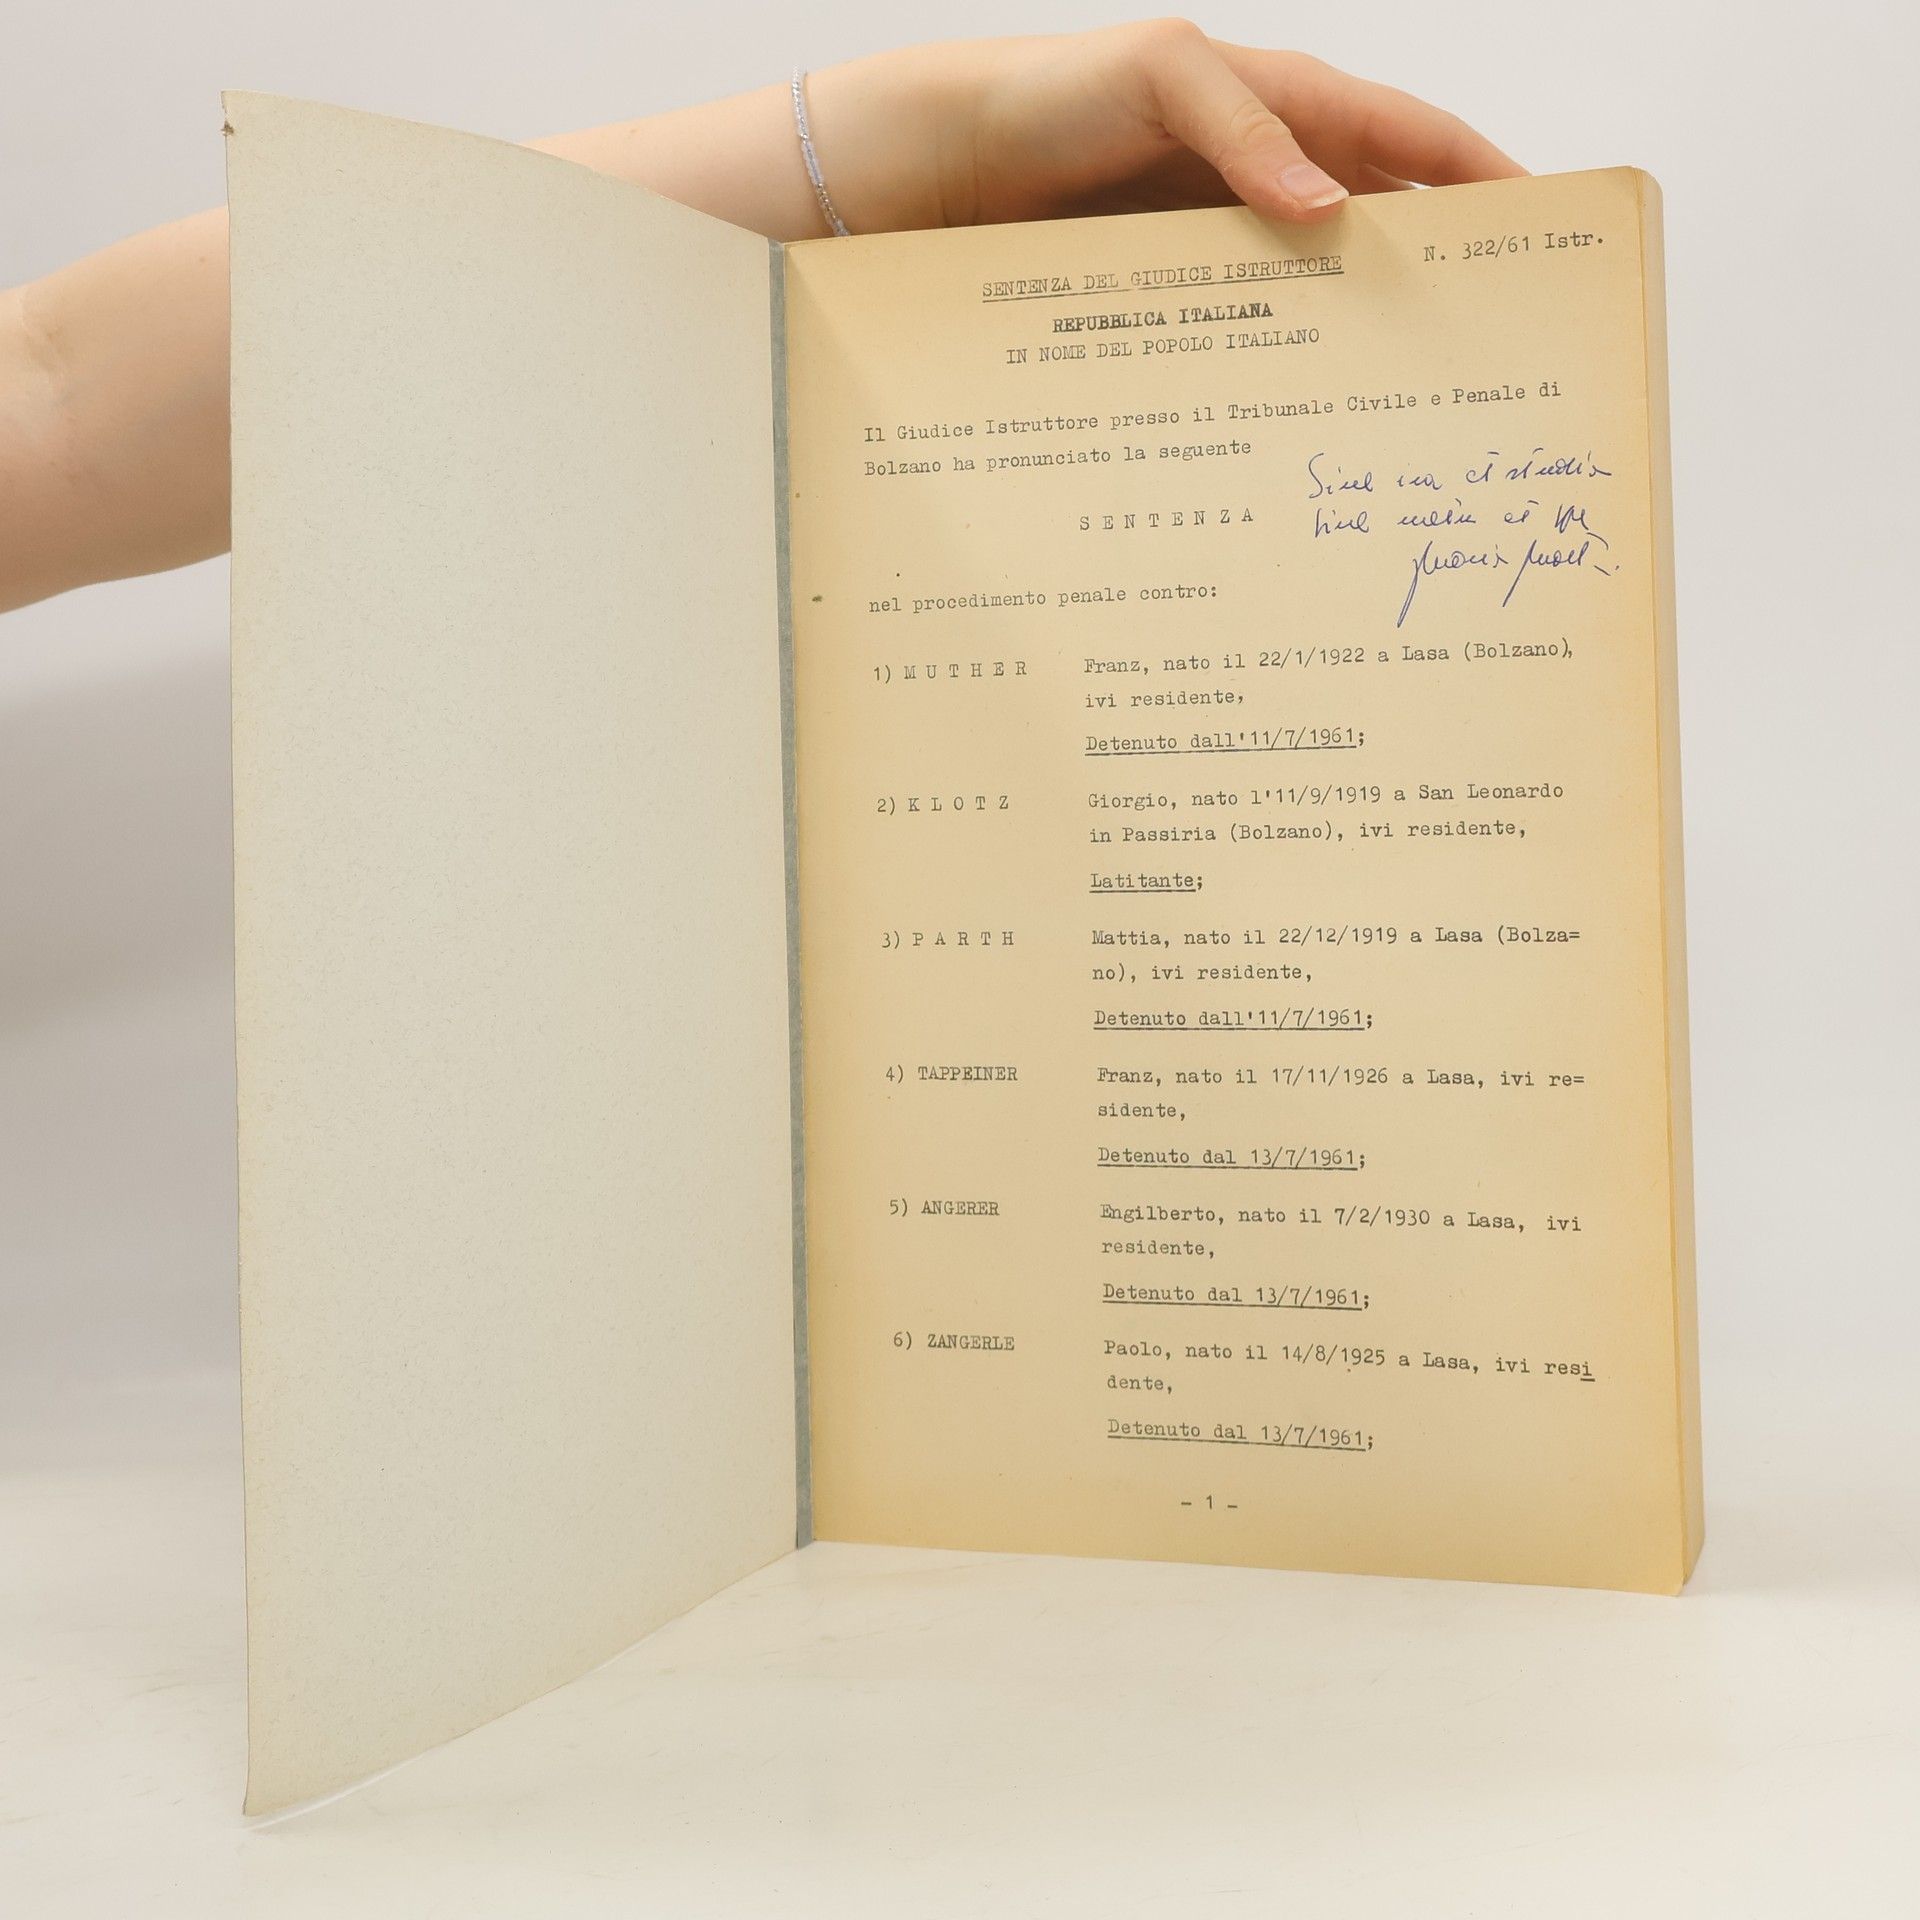 N. 322/61 Istr.
SENTENZA DEL GIUDICE ISTRUTTORE
REPUBBLICA ITALIANA
IN NOME DEL POPOLO ITALIANO
Il Giudice Istruttore presso il Tribunale Civile e Penale di
Bolzano ha pronunciato la seguente
Sine ira et studio
sine et
S E N T E N Z A
nel procedimento penale contro:
1) M U T H E R Franz, nato il 22/1/1922 a Lasa (Bolzano),
ivi residente,
Detenuto dall'11/7/1961;
2) K L O T Z Giorgio, nato l'11/9/1919 a San Leonardo
in Passiria (Bolzano), ivi residente,
Latitante;
3) P A R T H Mattia, nato il 22/12/1919 a Lasa (Bolza=
no), ivi residente,
Detenuto dall'11/7/1961;
4) TAPPEINER Franz, nato il 17/11/1926 a Lasa, ivi re=
sidente,
Detenuto dal 13/7/1961;
5) ANGERER Engilberto, nato il 7/2/1930 a Lasa, ivi
residente,
Detenuto dal 13/7/1961;
6) ZANGERLE Paolo, nato il 14/8/1925 a Lasa, ivi resi
dente,
Detenuto dal 13/7/1961;
- 1 -